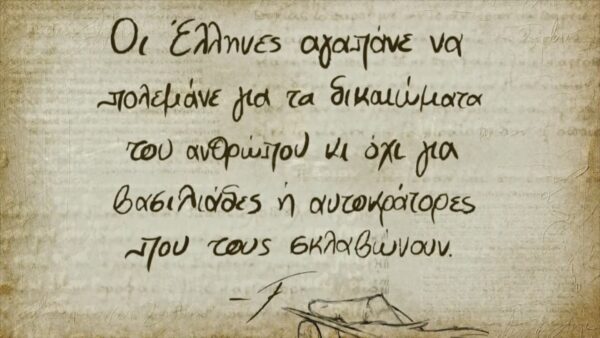 Οι Έλληνες αγαπάνε να
πολεμάνε για τα δικαιώματα
του ανθρώπου κι όχι για
βασιλιάδες ή αυτοκράτορες
που τους σκλαβώνουν.